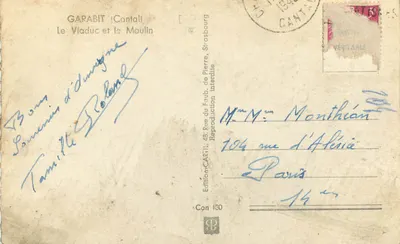 GARABIT (Cantal)
Le Viaduc et le Moulin
Bons
Souvenirs d'Auvergne
Famille Roland
Edition CAP, 48, Rue du Faub. de Pierre, Strasbourg
Reproduction interdite
CANTAL
Mr Mme
104 rue d'Alésia
Paris
14e